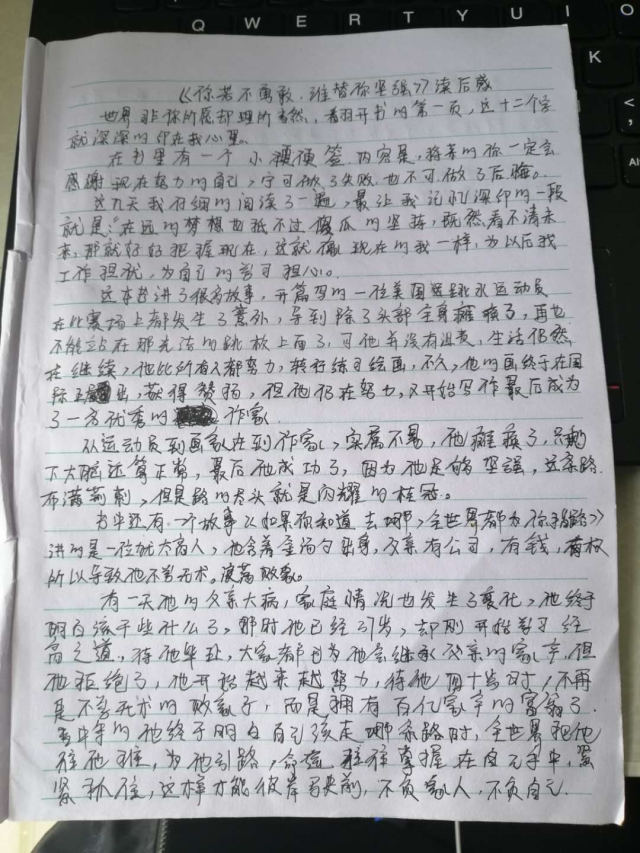 Q W E R T Y U I
K
《你若不勇敢，谁替你坚强》读后感
世界非你所愿却理所当然，看翻开书的第一页，这十二个字
就深深的印在我心里。
在书里有一个小便签，内容是，将来的你一定会
感谢现在努力的自己，宁可做了失败也不可做了后悔。
这几天我仔细的阅读了一遍，最让我记忆深印的一段
就是：“在远的梦想也抵不过傻瓜的坚持，既然看不清未
来，那就好好把握现在，这就像现在的我一样，为以后我
工作担忧，为自己的学习担心。
这本书讲了很多故事，开篇写的一位美国跳水运动员
在比赛场上却发生了意外，导到除了头部全身瘫痪了，再也
不能站在那光洁的跳板上面了，可他并没有沮丧，生活仍然
继续，他比所有人都努力，转行练习绘画，不久，他的画终于在国
际 出，获得赞扬，但他仍在努力，又开始写作最后成为
了一方优秀的 作家
从运动员到画家在到作家，实属不易，他瘫痪了，只剩
下大脑还算正常，最后他成功了，因为他足够坚强，这条路
布满荆刺，但是路的尽头就是闪耀的桂冠。
书中还有一个故事《如果你知道去哪，全世界都为你让路》
讲的是一位犹太商人，他含着金汤勺出身，父亲有公司，有钱，有权
所以导致他不学无术，浪荡败家。
有一天他的父亲大病，家庭情况也发生了变化，他终于
明白该干些什么了，那时他已经 ，却刚开始学习经
商之道，待他毕业，大家都以为他会继承父亲的家产，但
他拒绝了，他开始越来越努力，待他四十岁时，不再
是不学无术的败家子，而是拥有百亿家产的富翁了。
当年的他终于明白自己该走哪条路时，全世界把他
往他 ，为他引路，命运往往掌握在自己手中，紧
紧抓住，这样才能彼岸 前，不负家人，不负自己。